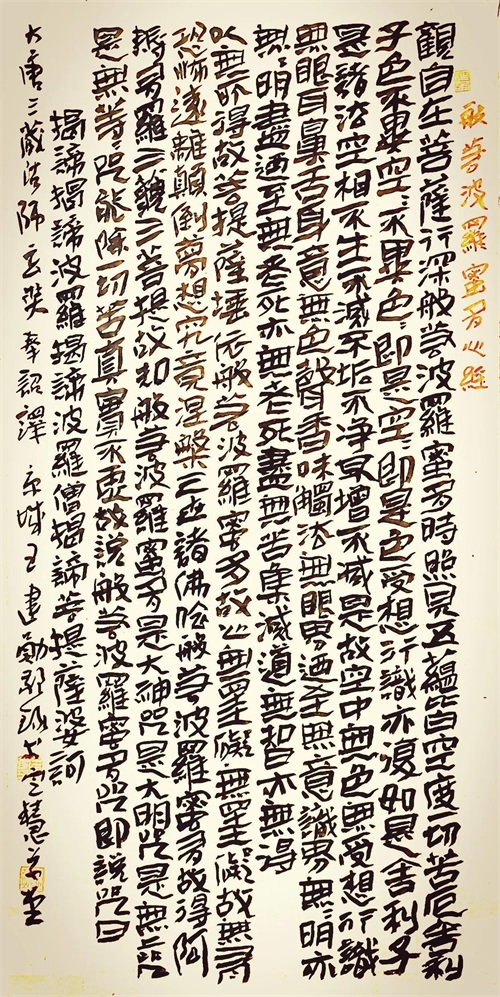 般若波羅蜜多心經
觀自在菩薩行深般若波羅蜜多時照見五蘊皆空度一切苦厄舍利
子色不異空〻不異色〻即是空〻即是色受想行識亦復如是舍利子
是諸法空相不生不滅不垢不淨不增不減是故空中無色無受想行識
無眼耳鼻舌身意無色聲香味觸法無眼界迺至無意識界無〻明亦
無〻明盡迺至無老死亦無老死盡無苦集滅道無智亦無得
以無所得故菩提薩埵依般若波羅蜜多故心無罣礙無罣礙故無有
恐怖遠離顛倒夢想究竟涅槃三世諸佛依般若波羅蜜多故得阿
耨多羅三藐三菩提故知般若波羅蜜多是大神咒是大明咒是無上咒
是無等〻咒能除一切苦真實不虛故說般若波羅蜜多咒即說咒曰
揭諦揭諦波羅揭諦波羅僧揭諦菩提薩婆訶
大唐三藏法師玄奘奉詔譯 京城王建勛 雲慧草堂